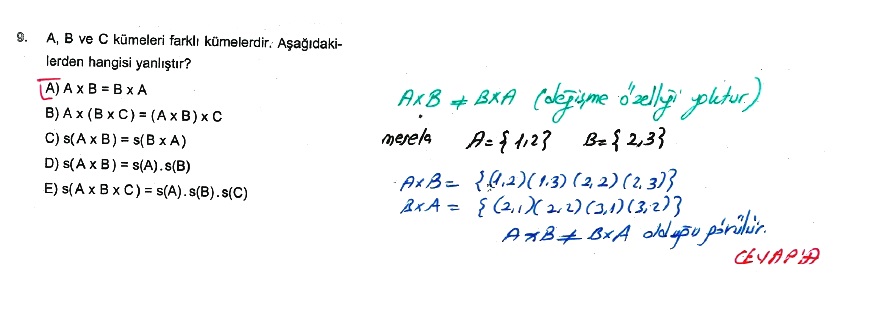 9. A, B ve C kümeleri farklı kümelerdir. Aşağıdaki-
lerden hangisi yanlıştır?
A) A x B = B x A
B) A x (B x C) = (A x B) x C
C) s(A x B) = s(B x A)
D) s(A x B) = s(A).s(B)
E) s(A x B x C) = s(A).s(B).s(C)
AxB ≠ BxA (değişme özelliği yoktur.)
mesela A={1,2} B={2,3}
AxB = {(1,2)(1,3)(2,2)(2,3)}
BxA = {(2,1)(2,2)(3,1)(3,2)}
AxB ≠ BxA olduğu görülür.
CEVAP A